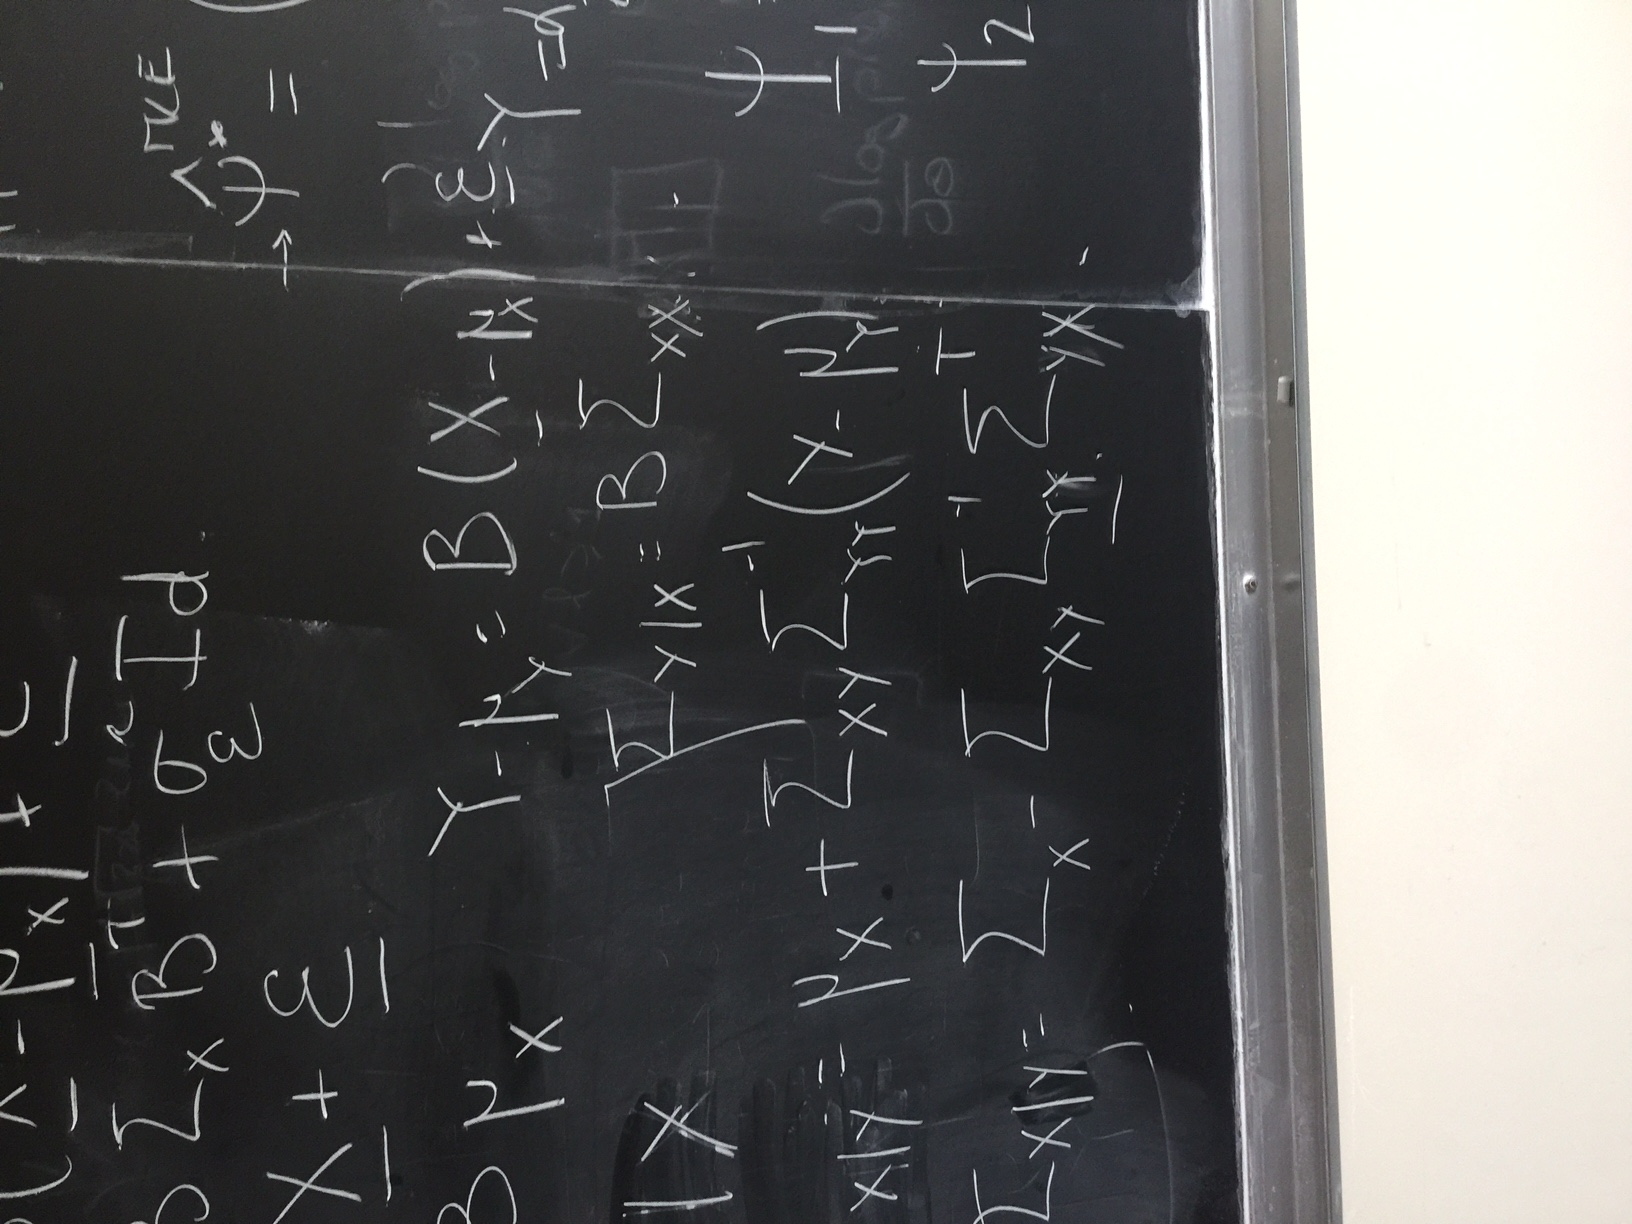 (X - μ_X) + ε
B Σ_X B^T + σ_ε^2 Id
X + ε
B μ_X
Y - μ_Y = B (X - μ_X) + ε
| X
Σ_{Y|X} = B Σ_{XX}
_{X|Y} = μ_X + Σ_{XY} Σ_{YY}^{-1} (Y - μ_Y)
Σ_{X|Y} = Σ_X - Σ_{XY} Σ_{YY}^{-1} Σ_{YX}^T .
→ ψ̂*^{MKE} = (
Y = α
ψ_1
ψ_2